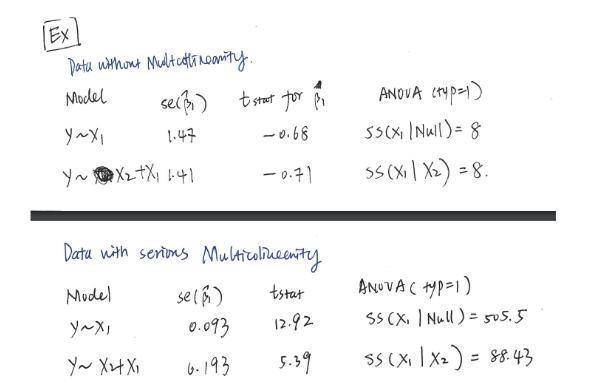 Ex
Data without Multicollinearity.
Model se(β̂₁) t stat for β̂₁ ANOVA (typ=1)
y~X₁ 1.47 -0.68 SS(X₁|Null)= 8
y~ X₂+X₁ 1.41 -0.71 SS(X₁|X₂) = 8.
Data with serious Multicolineenity
Model se(β̂₁) tstat ANOVA( typ=1)
y~X₁ 0.093 12.92 SS(X₁|Null) = 505.5
y~ X₂+X₁ 0.193 5.39 SS(X₁|X₂) = 88.43